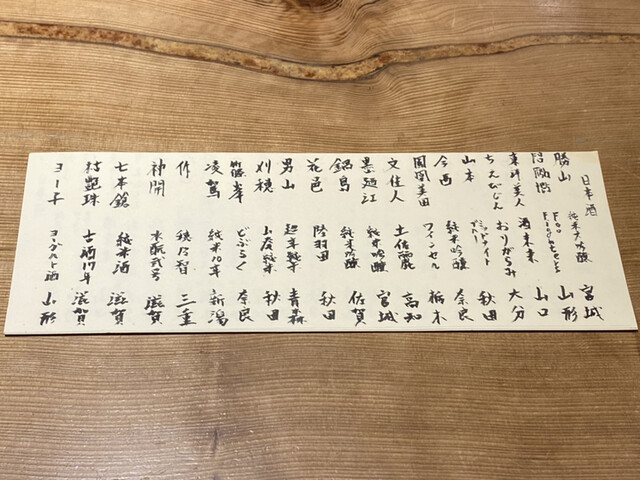 日本酒
勝山 純米大吟醸 宮城
Foo Fighters 山形
東洋美人 酒未来 山口
ちえびじん おりがらみ 大分
山本 ミッドナイト 秋田
今西 純米吟醸 奈良
鳳凰美田 ワインセル 栃木
文佳人 土佐麗 高知
墨廼江 純米吟醸 宮城
鍋島 純米吟醸 佐賀
花邑 陸羽田 秋田
男山 超辛純米 青森
刈穂 山廃純米 秋田
篠峯 どぶろく 奈良
凌駕 純米10年 新潟
作 三重
神開 水酛弐号 滋賀
七本鎗 純米酒 滋賀
古酒17年 滋賀
ヨーグルト酒 山形